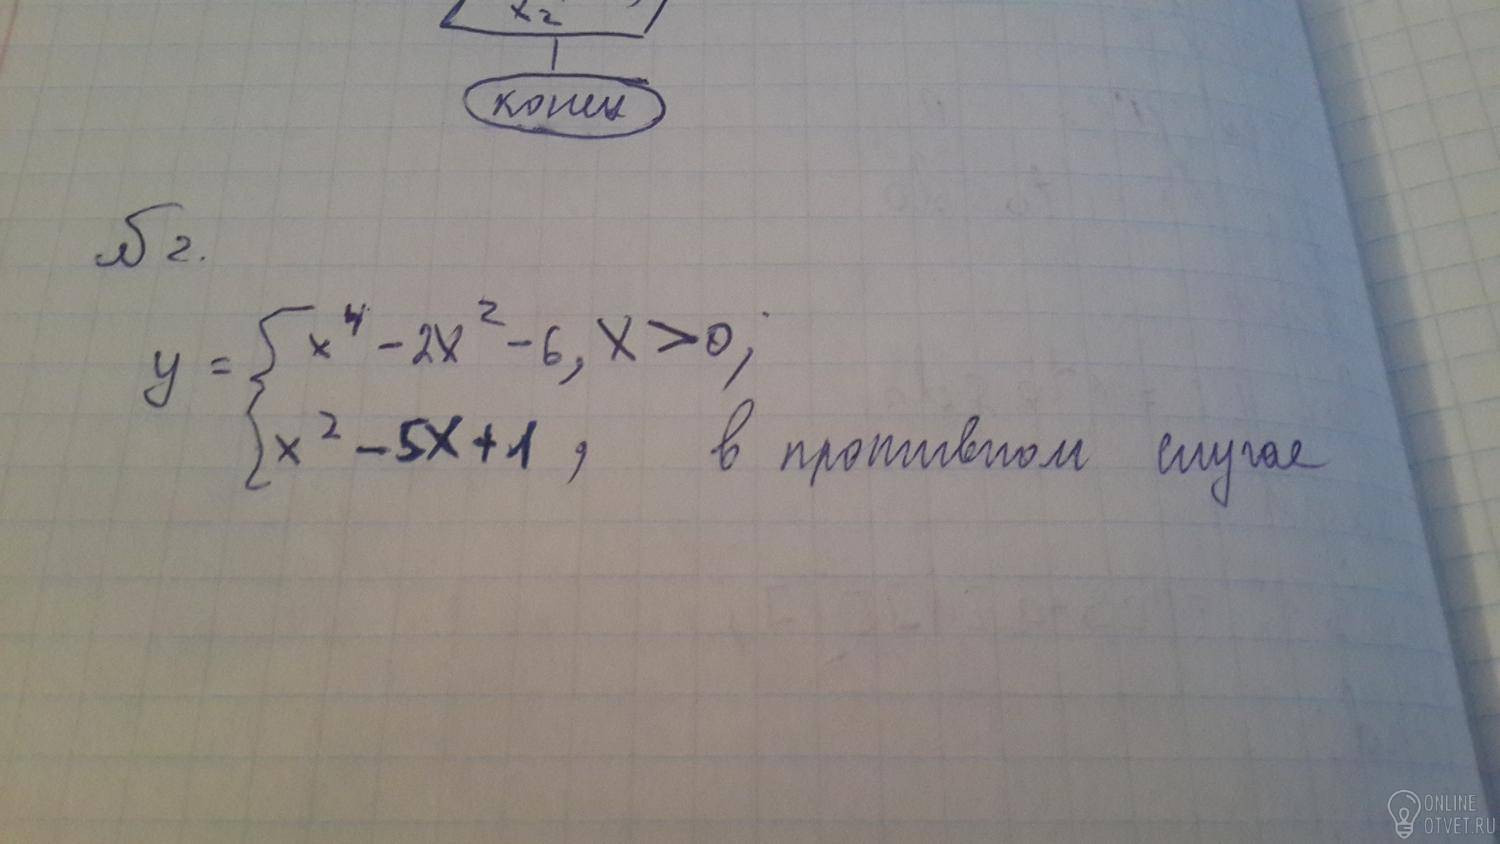 x₂
конец
№ 2.
y = { x⁴ - 2x² - 6, x > 0;
x² - 5x + 1, в противном случае
ONLINE
OTVET.RU